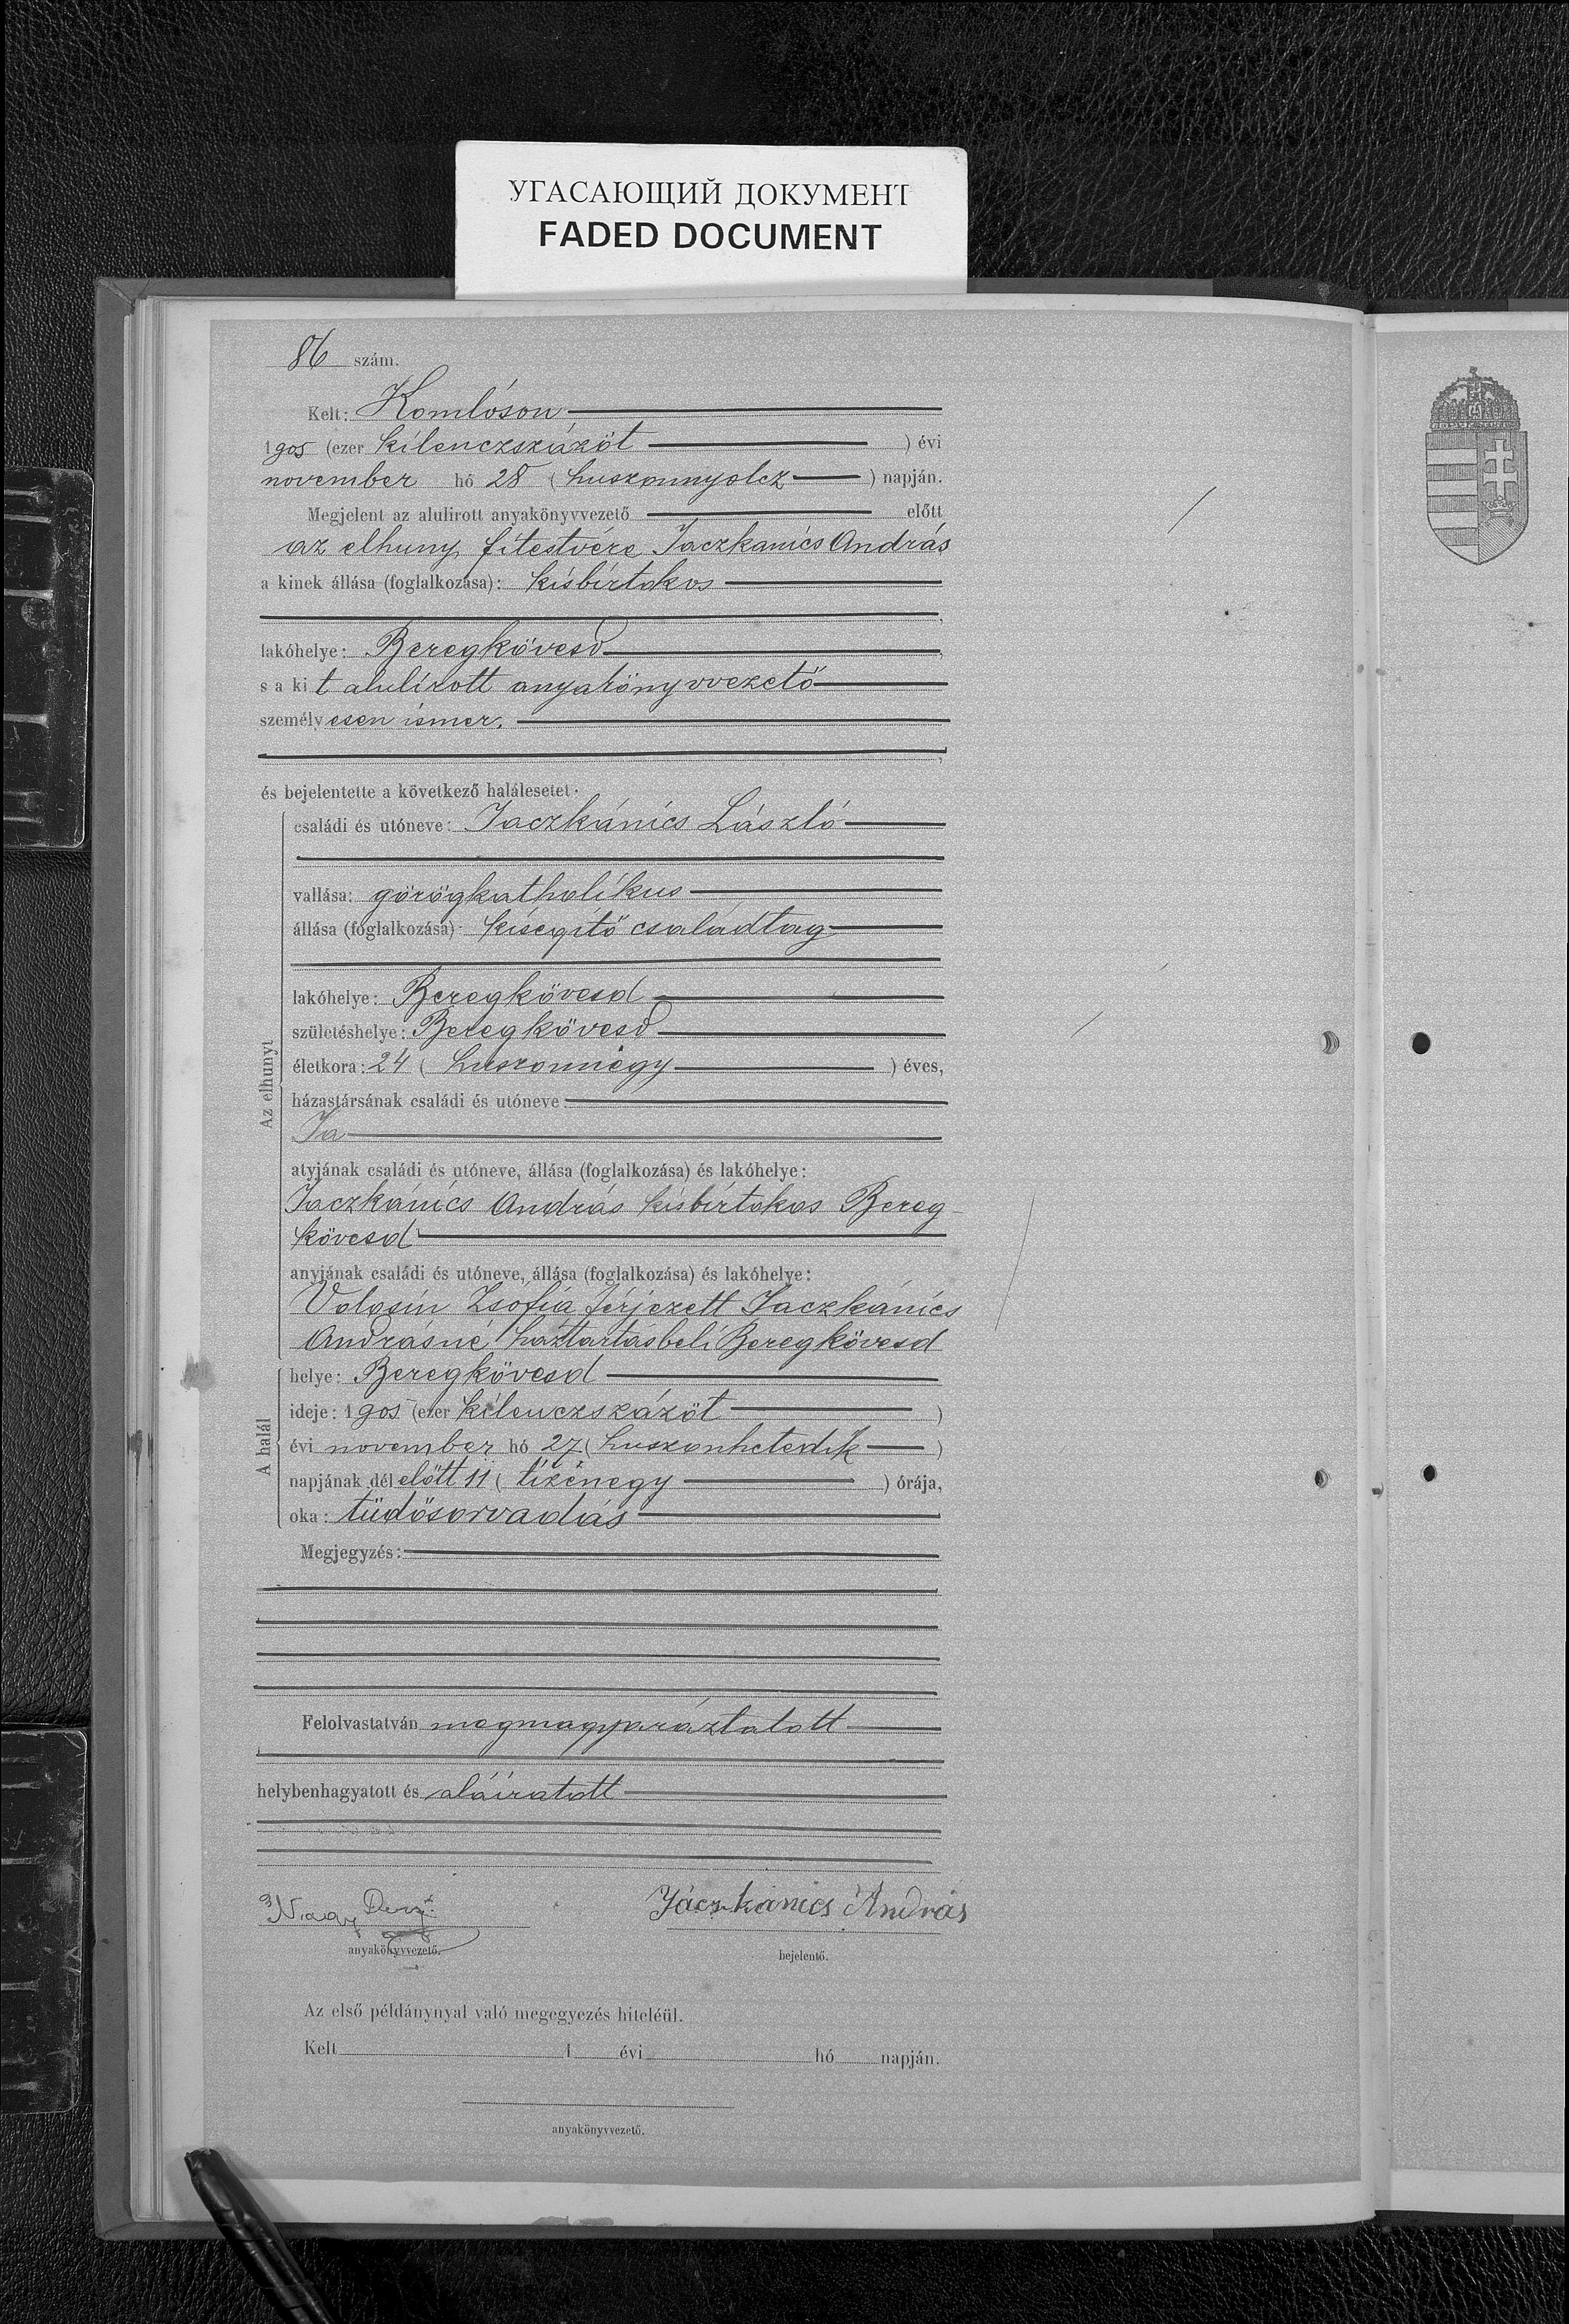 УГАСАЮЩИЙ ДОКУМЕНТ
FADED DOCUMENT
86 szám.
Kelt: Komlóson
1905 (ezer kilenczszázöt ) évi
november hó 28 ( huszonnyolcz ) napján.
Megjelent az alulirott anyakönyvvezető előtt
az elhuny fitestvére Jaczkanics András
a kinek állása (foglalkozása): kisbirtokos
lakóhelye: Beregkövesd
s a kit alulirott anyakönyvvezető
személyesen ismer.
és bejelentette a következő halálesetet:
Az elhunyt
családi és utóneve: Jaczkánics László
vallása: görögkatholikus
állása (foglalkozása): kisegitő családtag
lakóhelye: Beregkövesd
születéshelye: Beregkövesd
életkora: 24 ( huszonnégy ) éves,
házastársának családi és utóneve:
Ja
atyjának családi és utóneve, állása (foglalkozása) és lakóhelye:
Jaczkánics András kisbirtokos Bereg-
kövesd
anyjának családi és utóneve, állása (foglalkozása) és lakóhelye:
Volosin Zsofia férjezett Jaczkánics
Andrásné háztartásbeli Beregkövesd
A halál
helye: Beregkövesd
ideje: 1905 (ezer kilenczszázöt )
évi november hó 27 ( huszonhetedik )
napjának dél előtt 11 ( tizenegy ) órája,
oka: tüdősorvadás
Megjegyzés:
Felolvastatván megmagyaráztatott
helybenhagyatott és aláiratott
Nagy
anyakönyvvezető.
Jáczkánics András
bejelentő.
Az első példánynyal való megegyezés hiteléül.
Kelt 1 évi hó napján.
anyakönyvvezető.